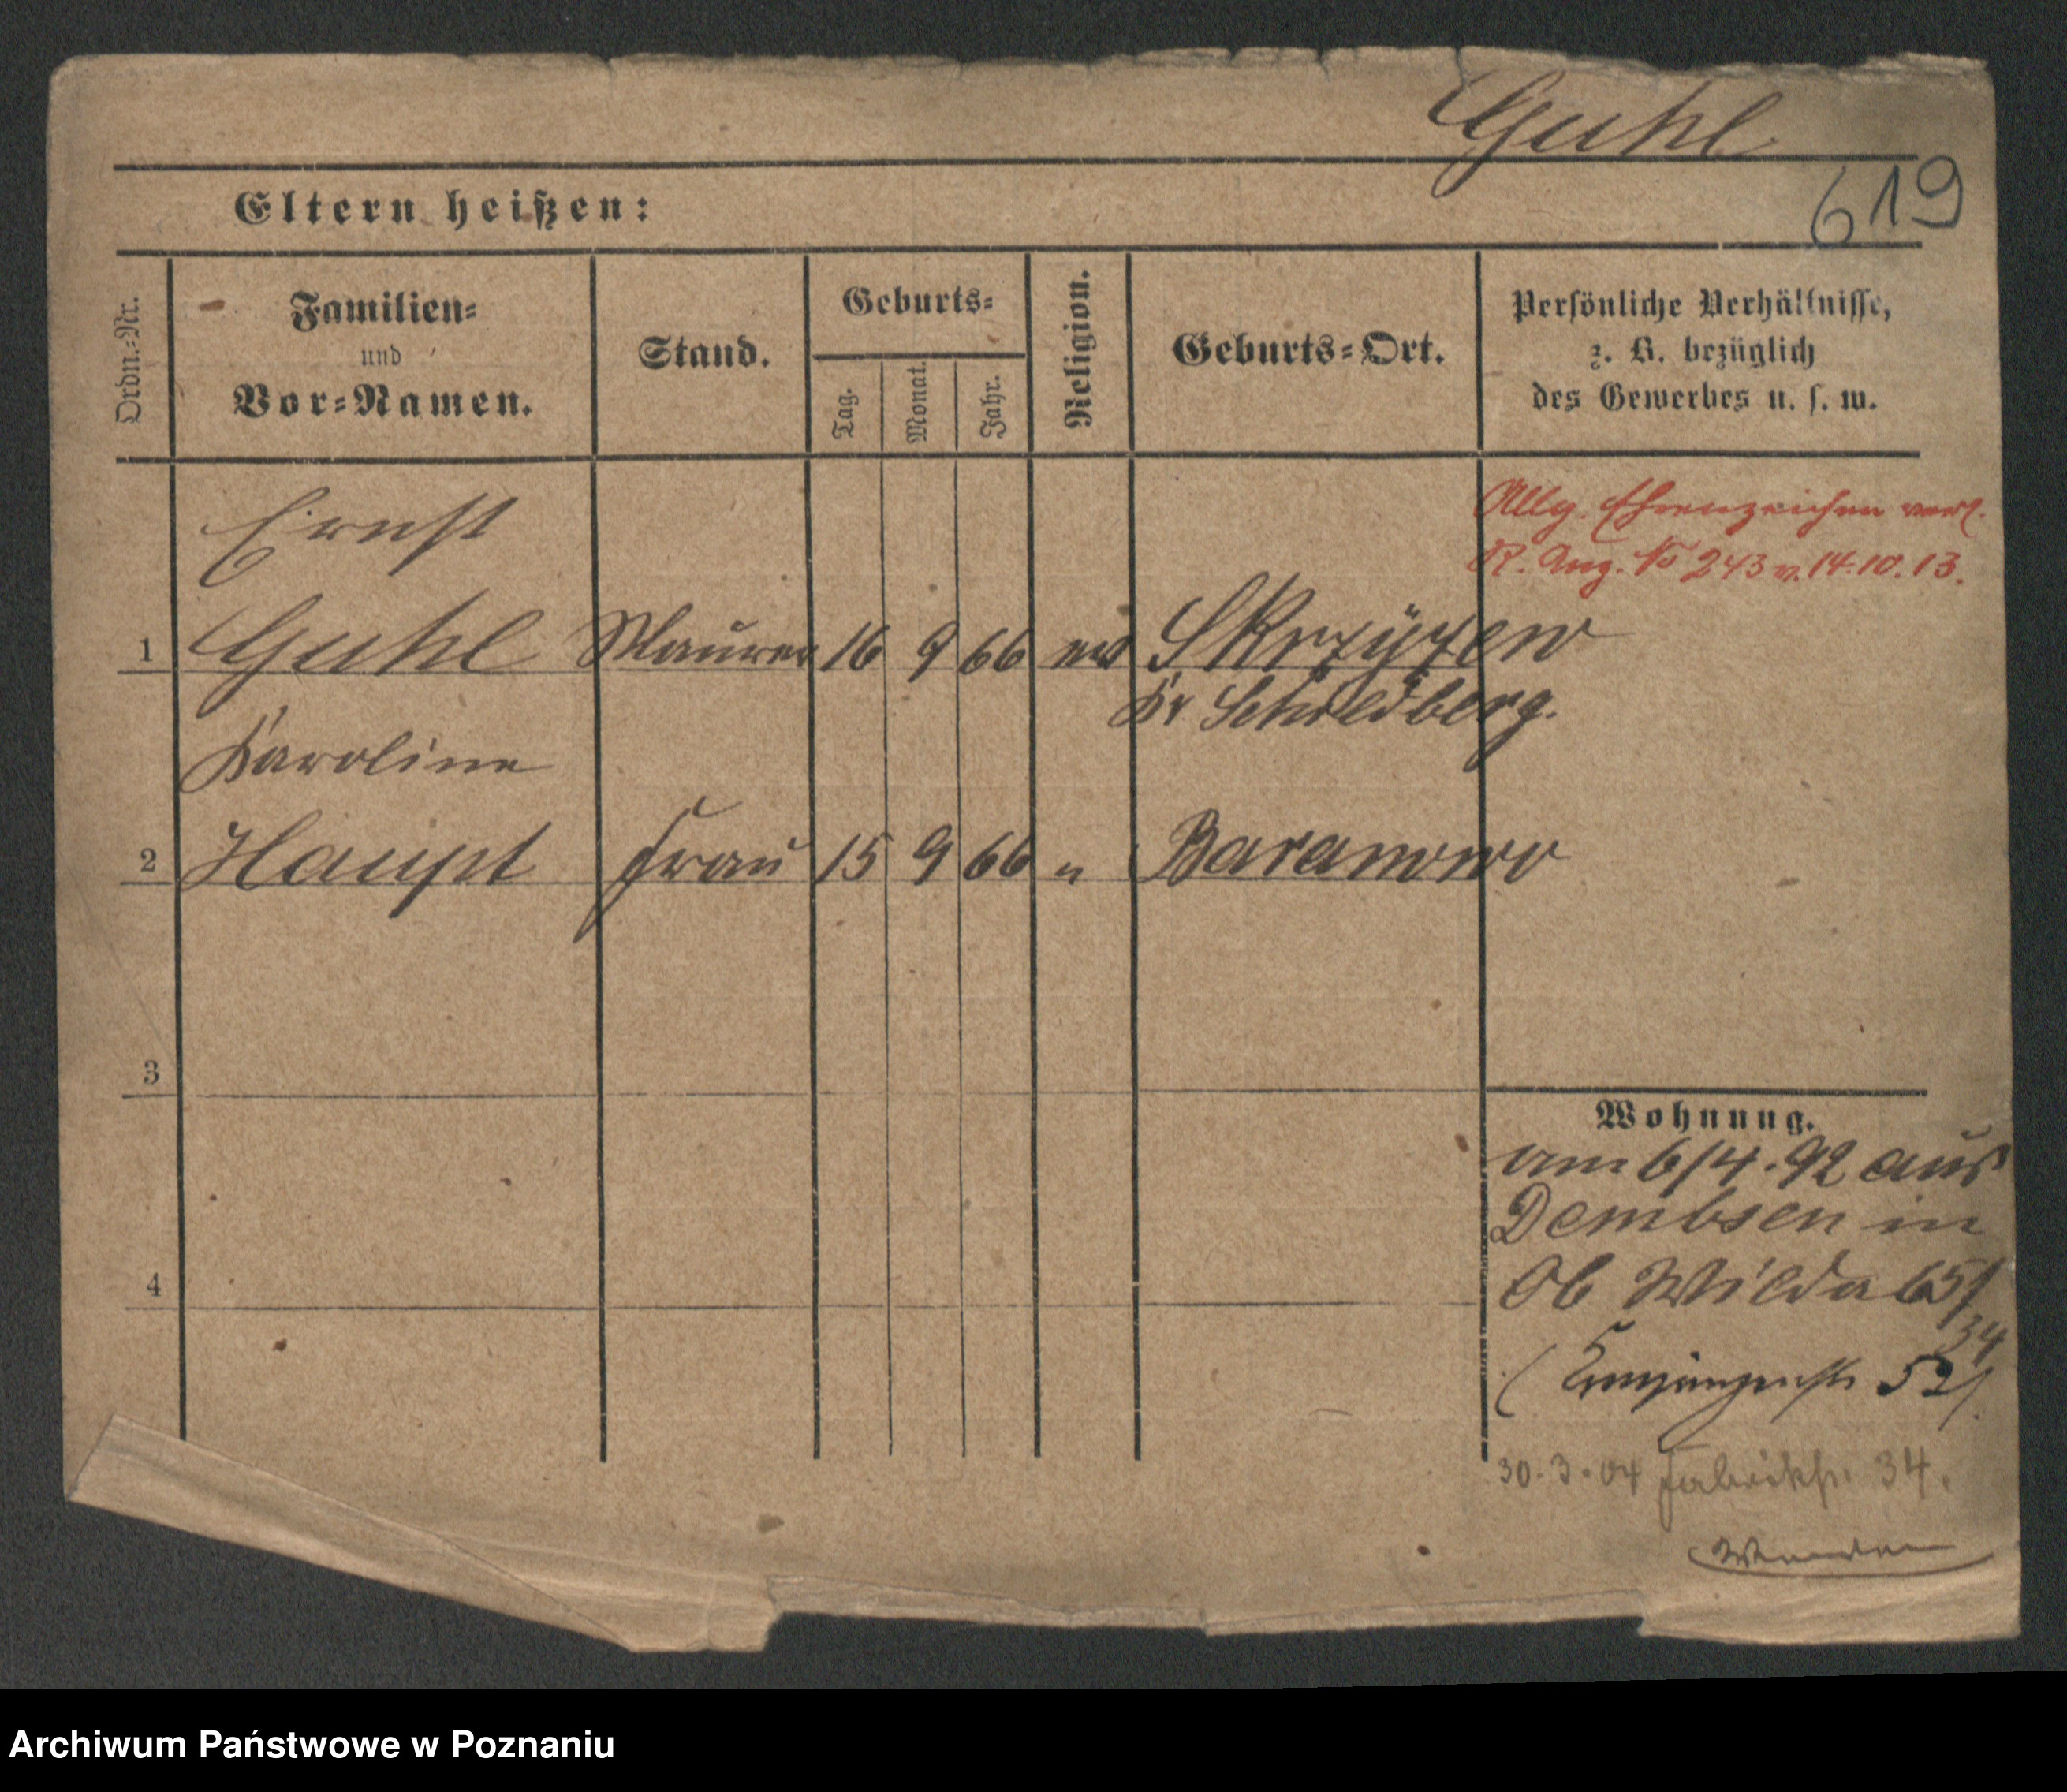 Guhl
619
Eltern heißen:
Ordn.-Nr.
Familien-
und
Vor-Namen.
Stand.
Geburts-
Tag.
Monat.
Jahr.
Religion.
Geburts-Ort.
Persönliche Verhältnisse,
z. B. bezüglich
des Gewerbes u. s. w.
Allg. Ehrenzeichen verl.
R. Anz. No 243 v. 14.10.13.
Ernst
1 Guhl Maurer 16 9 66 ev
Kr Schildberg.
Karoline
2 Haupt Frau 15 9 66 " Baranowo
3
4
Wohnung.
am 6/4.92 aus
Dembsen in
Ob Wilda 65/
34
( Kronprinzenstr 52/
30.3.04 Fabrikstr. 34.
Archiwum Państwowe w Poznaniu